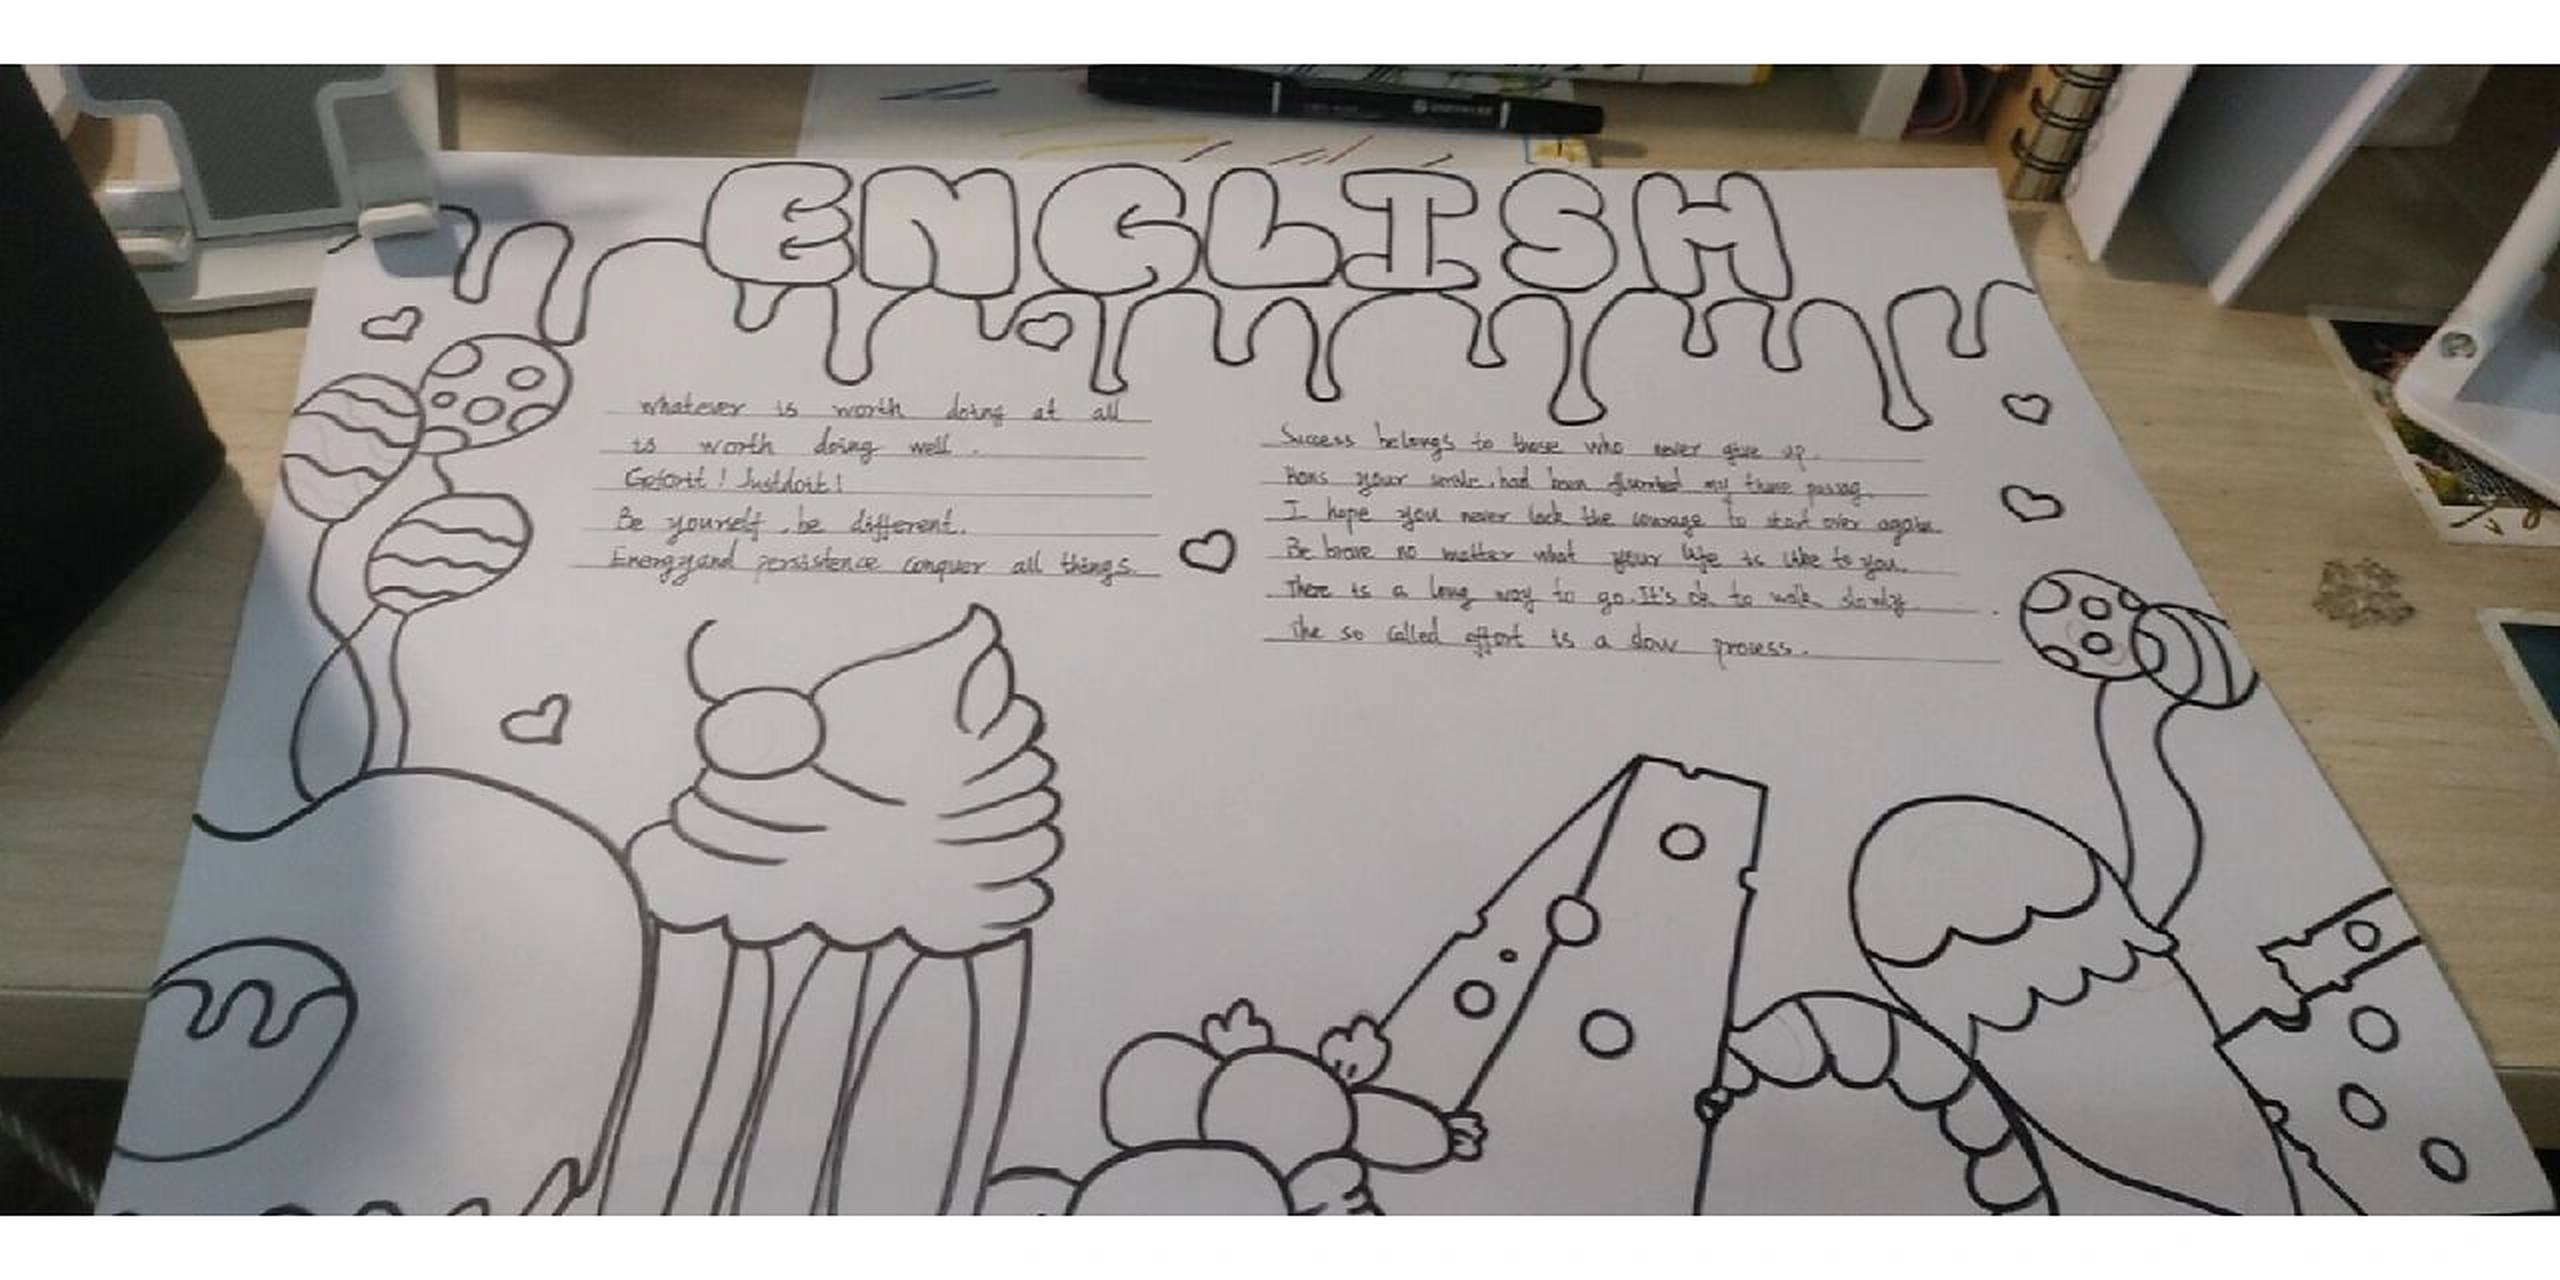 ENGLISH
whatever is worth doing at all
is worth doing well.
Goforit! Justdoit!
Be yourself, be different.
Energyand persistence conquer all things.
Success belongs to those who never give up.
your smile, had been my
I hope you never lack the courage to start over again.
Be brave no matter what your life is like to you.
There is a long way to go. It's ok to walk slowly.
the so called effort is a slow process.